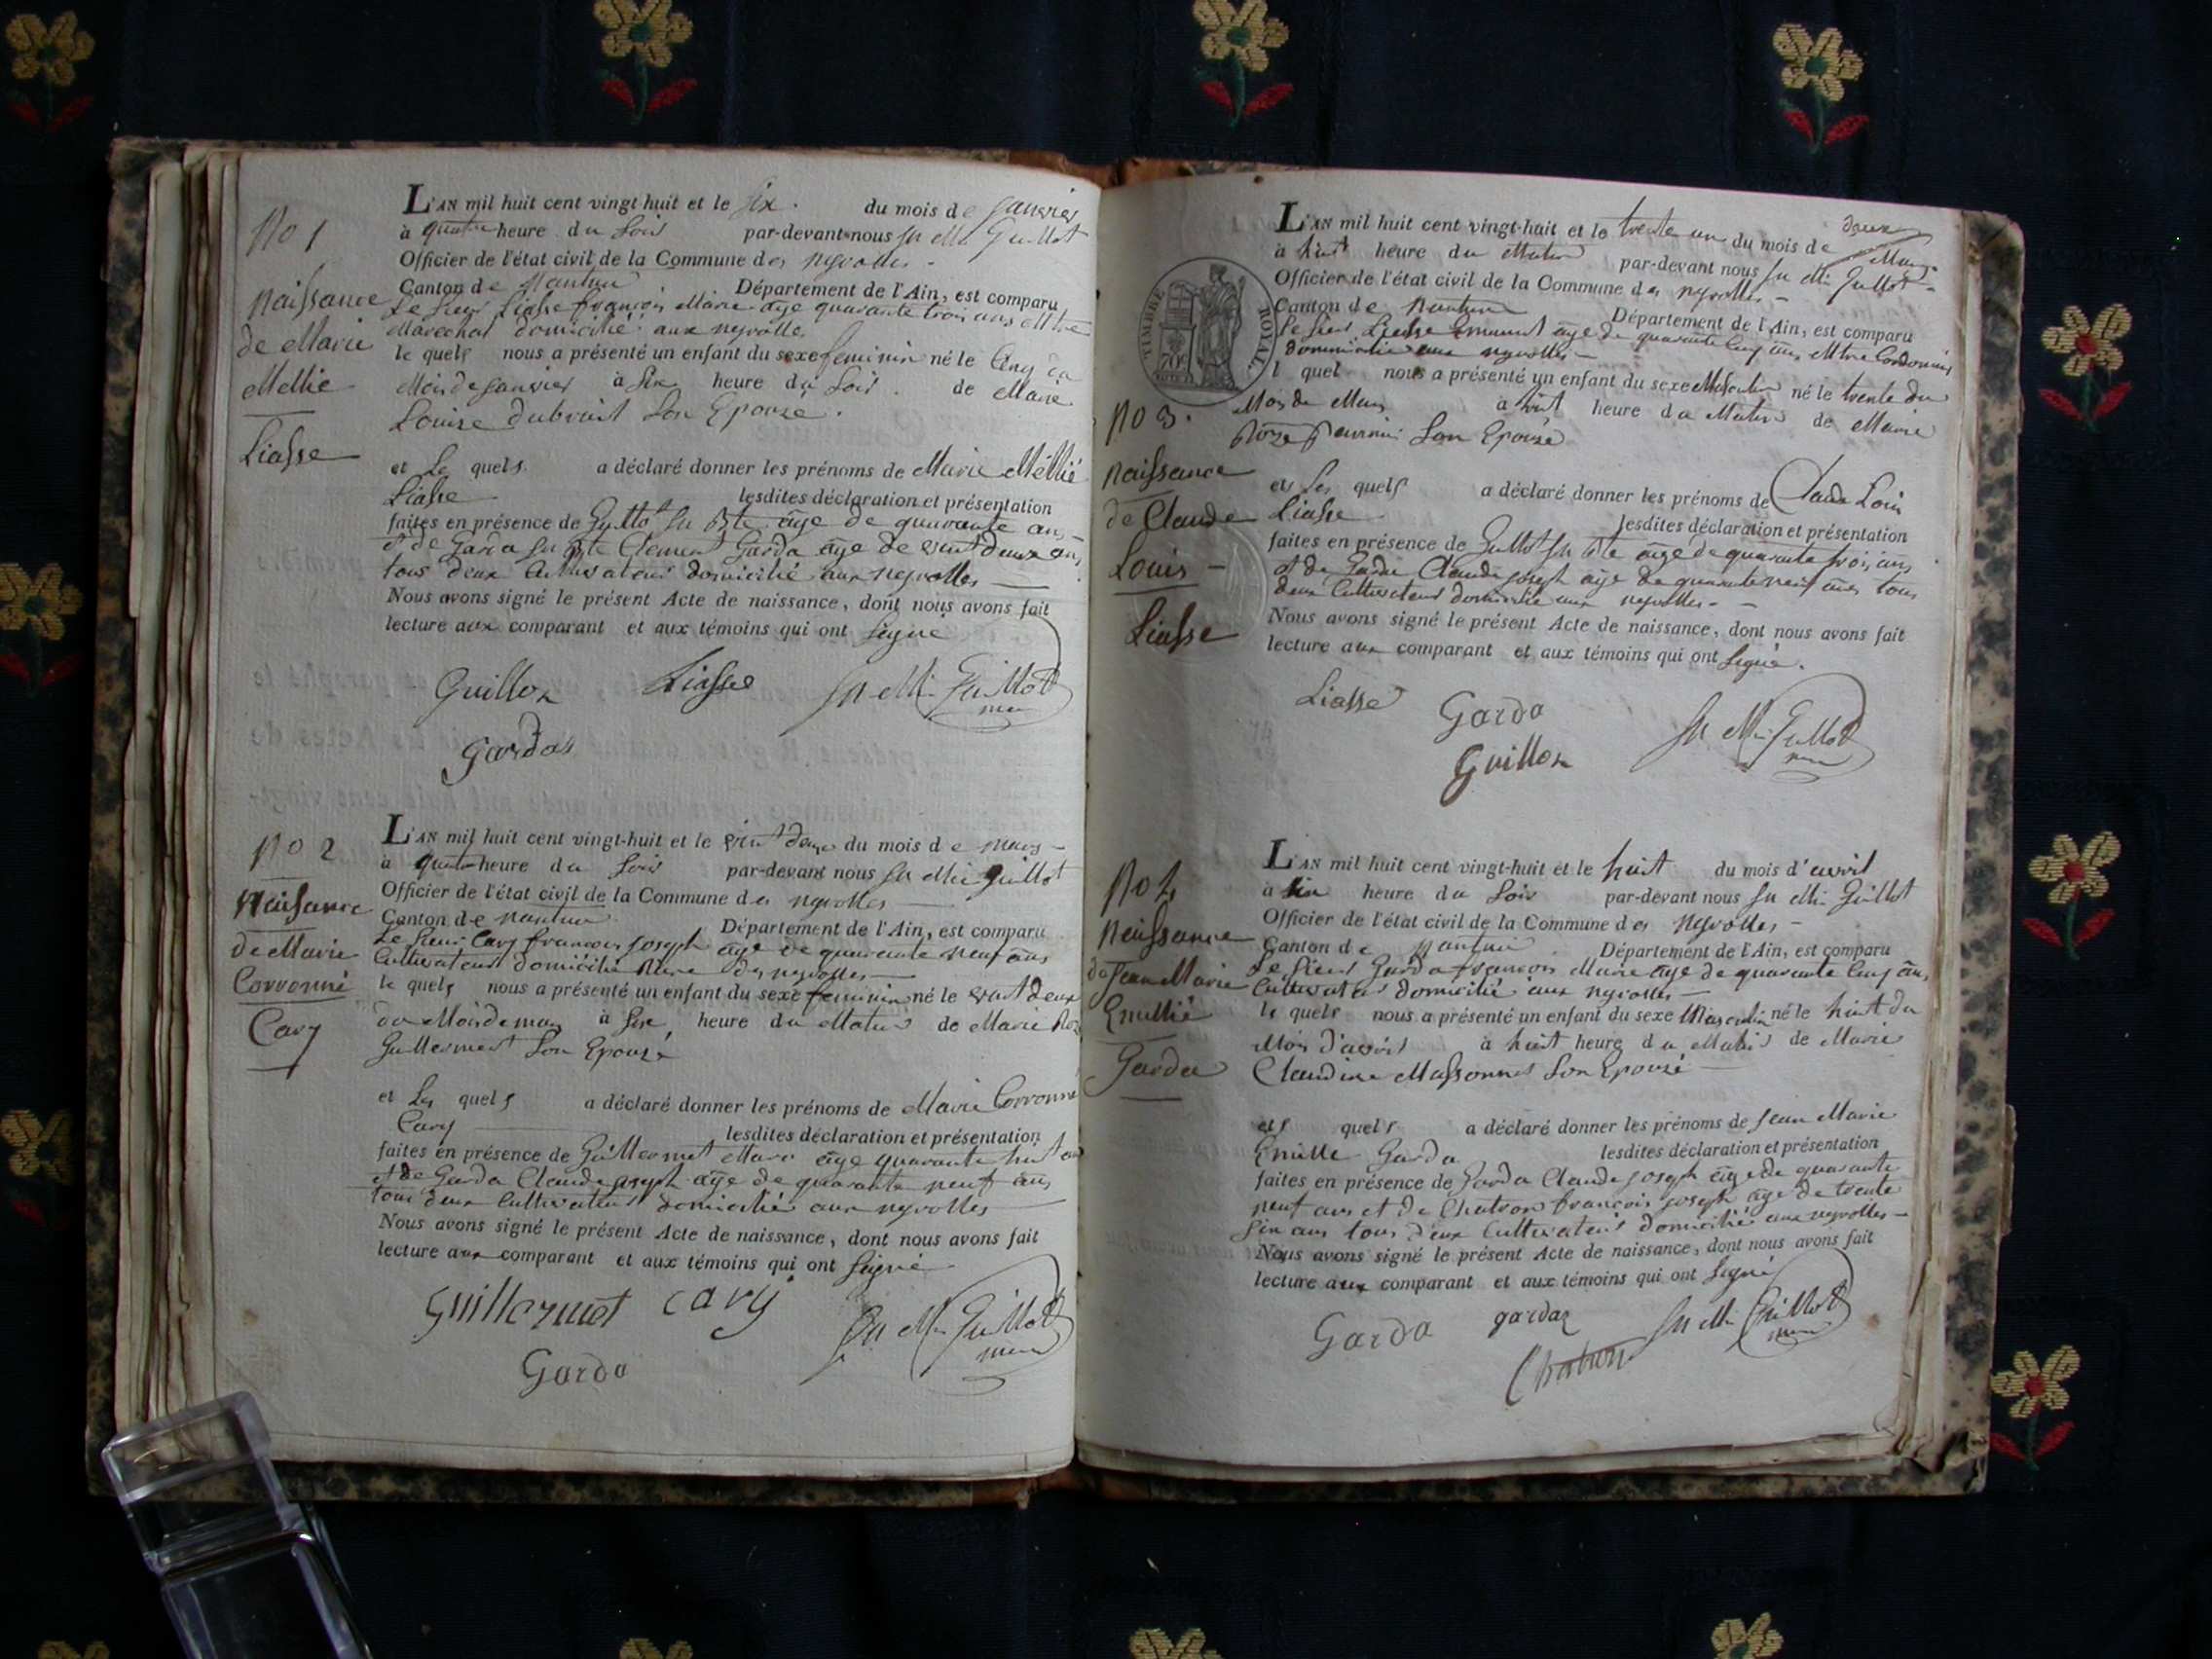 No 1
Naissance
de Marie
Mellie
Liasse
L'AN mil huit cent vingt-huit et le six. du mois de Janvier
à quatre heure du Soir par-devant-nous Jn Mie Guillot
Officier de l'état civil de la Commune des neyrolles -
Canton de Nantua Département de l'Ain, est comparu
Le Sieur Liasse françois Marie age quarante trois ans Mtre
Marechal domicilié aux neyrolle
le quels nous a présenté un enfant du sexe feminin né le Cinq du
Mois de Janvier à Six heure du Soir. de Marie
Louise dubruit Son Epouse.
et Le quels a déclaré donner les prénoms de Marie Mellié
Liasse lesdites déclaration et présentation
faites en présence de Jn Bte âge de quarante ans
et de Garda Jn Bte Clement Garda âge de vint deux ans
tous deux Cultivateurs domicilié aux neyrolles
Nous avons signé le présent Acte de naissance, dont nous avons fait
lecture aux comparant et aux témoins qui ont Signé
Guillot Liasse Jn Mie Guillot
Gardas
No 2
Naissance
de Marie
Corronné
Cary
L'AN mil huit cent vingt-huit et le vint deux du mois de mars
à quatre heure du Soir par-devant nous Jn Mie Guillot
Officier de l'état civil de la Commune des neyrolles
Canton de nantua Département de l'Ain, est comparu
Le Sieur Cary françois Joseph âge de quarante neuf ans
Cultivateur domicilié des neyrolles
le quels nous a présenté un enfant du sexe feminin né le vint deux
du Mois de mars à Six heure du Matin de Marie
Guillermet Son Epouse
et Les quels a déclaré donner les prénoms de Marie Corronné
Cary lesdites déclaration et présentation
faites en présence de Guillermet Marc âge quarante huit
et de Garda Claude Joseph âge de quarante neuf ans
tous deux Cultivateurs domicilié aux neyrolles
Nous avons signé le présent Acte de naissance, dont nous avons fait
lecture aux comparant et aux témoins qui ont Signé
Guillermet Cary Jn Mie Guillot
Garda
TIMBRE ROYAL
70c
No 3.
Naissance
de Claude
Louis -
Liasse
L'AN mil huit cent vingt-huit et le trente un du mois de Mars
à huit heure du Matin par-devant nous Jn Mie Guillot
Officier de l'état civil de la Commune des neyrolles -
Canton de Nantua Département de l'Ain, est comparu
Le Sieur Liasse âge de quarante Cinq ans Mtre Cordonnier
domicilié aux neyrolles
l quel nous a présenté un enfant du sexe Masculin né le trente du
Mois de Mars à huit heure du Matin de Marie
Roze Son Epouse
et Les quels a déclaré donner les prénoms de Claude Louis
Liasse lesdites déclaration et présentation
faites en présence de Guillot Jn Bte âge de quarante trois ans
et de Garda Claude Joseph âge de quarante neuf ans tous
deux Cultivateurs domicilié aux neyrolles -
Nous avons signé le présent Acte de naissance, dont nous avons fait
lecture aux comparant et aux témoins qui ont Signé.
Liasse Garda Jn Mie Guillot
Guillot
No 4
Naissance
de Jean Marie
Emillié
Garda
L'AN mil huit cent vingt-huit et le huit du mois d'avril
à Six heure du Soir par-devant nous Jn Mie Guillot
Officier de l'état civil de la Commune des Neyrolles -
Canton de Nantua Département de l'Ain, est comparu
Le Sieur Garda françois Marie âge de quarante Cinq ans
Cultivateur domicilié aux neyrolles
le quels nous a présenté un enfant du sexe Masculin né le huit du
Mois d'avril à huit heure du Matin de Marie
Claudine Massonnet Son Epouse
et quels a déclaré donner les prénoms de Jean Marie
Emille Garda lesdites déclaration et présentation
faites en présence de Garda Claude Joseph âge de quarante
neuf ans et de Chatron françois Joseph âge de trente
Six ans tous deux Cultivateurs domicilié aux neyrolles -
Nous avons signé le présent Acte de naissance, dont nous avons fait
lecture aux comparant et aux témoins qui ont Signé
Garda gardaz Jn Mie Guillot
Chatron